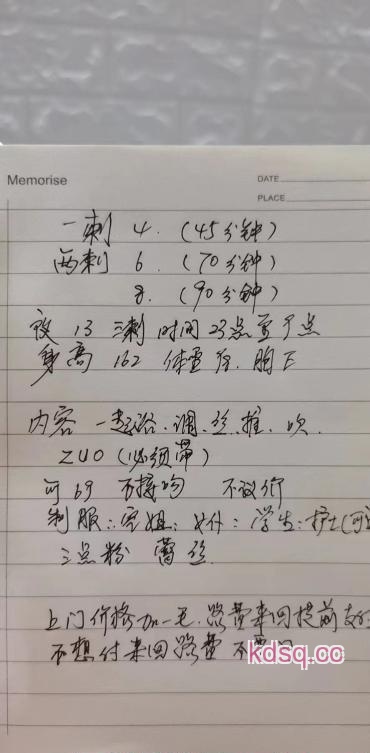 Memorise
DATE
PLACE
一刺 4. (45分钟)
两刺 6. (70分钟)
8. (90分钟)
夜 13 三刺 时间 23点至9点
身高 162 体重 胸E
内容 一起浴.调.丝.推.吹.
ZUO (必须带)
可69 不接吻 不议价
制服:空姐:女仆:学生:护士(可
三点粉 蕾丝
上门价格加一毛.路费来回提前支付
不想付来回路费 不要
kdsq.cc